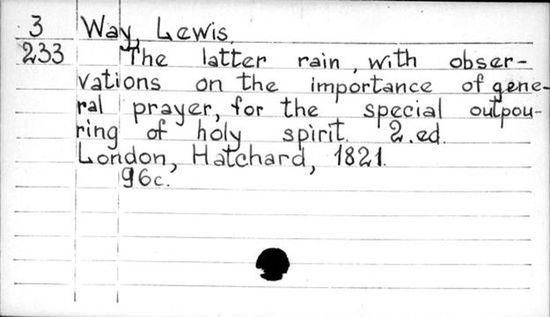 3 Way, Lewis.
233 The latter rain, with obser-
vations on the importance of gene-
ral prayer, for the special outpou-
ring of holy spirit. 2.ed.
London, Hatchard, 1821.
96c.